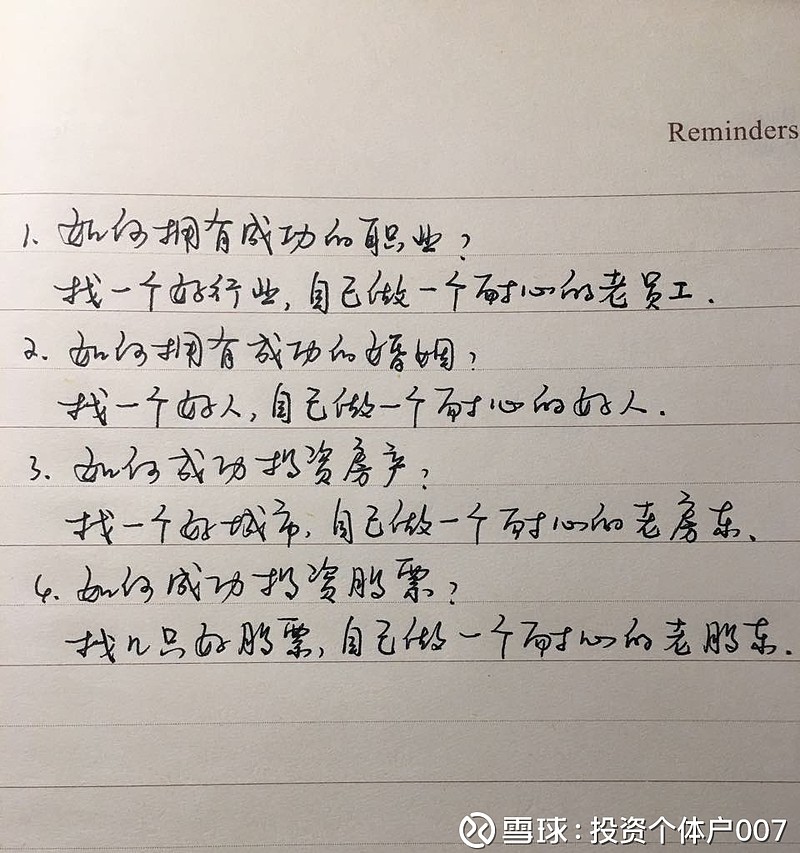 Reminders
1. 如何拥有成功的职业?
找一个好行业,自己做一个耐心的老员工.
2. 如何拥有成功的婚姻?
找一个好人,自己做一个耐心的好人.
3. 如何成功投资房产?
找一个好城市,自己做一个耐心的老房东.
4. 如何成功投资股票?
找几只好股票,自己做一个耐心的老股东.
雪球:投资个体户007